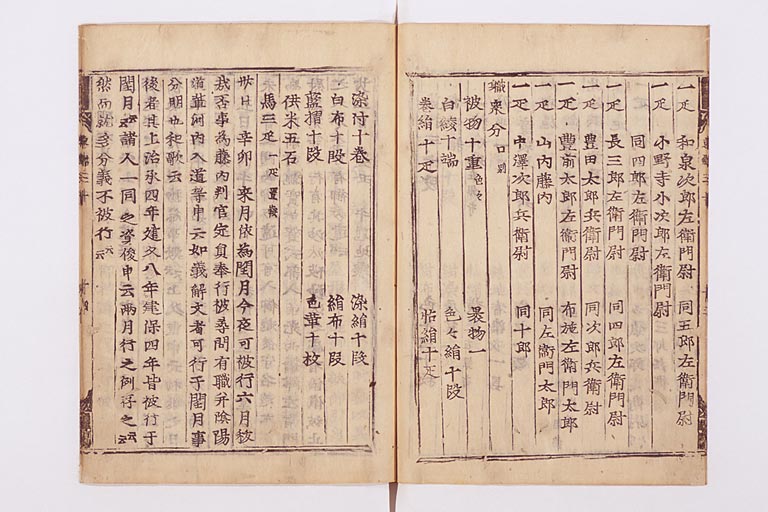 一疋　和泉次郎左衛門尉　同五郎左衛門尉
一疋　小野寺小次郎左衛門尉
同四郎左衛門尉
一疋　長三郎左衛門尉　同四郎左衛門尉
一疋　豊田太郎兵衛尉　同次郎兵衛尉
一疋　豊前太郎左衛門尉　布施左衛門太郎
一疋　山内藤内　同左衛門太郎
一疋　中澤次郎兵衛尉　同十郎
職衆分口別
被物十重色々　裹物一
白綾十端　色々絹十段
巻絹十疋　帖絹十疋
染付十巻　染絹十段
白布十段　絹布十段
藍摺十段　色革十枚
供米五石
馬一疋一疋置鞍
廿九日　辛卯　来月依為閏月今夜可被行六月秡
哉否事為藤内判官定員奉行被尋問有職并陰陽
道輩河内入道等申云如義解文者可行于閏月事
分明也和歌云
後者其上治承四年建久八年建保四年皆被行于
閏月云云諸人一同之處後申云兩月行之例存之云云
然而就多分義不被行云云